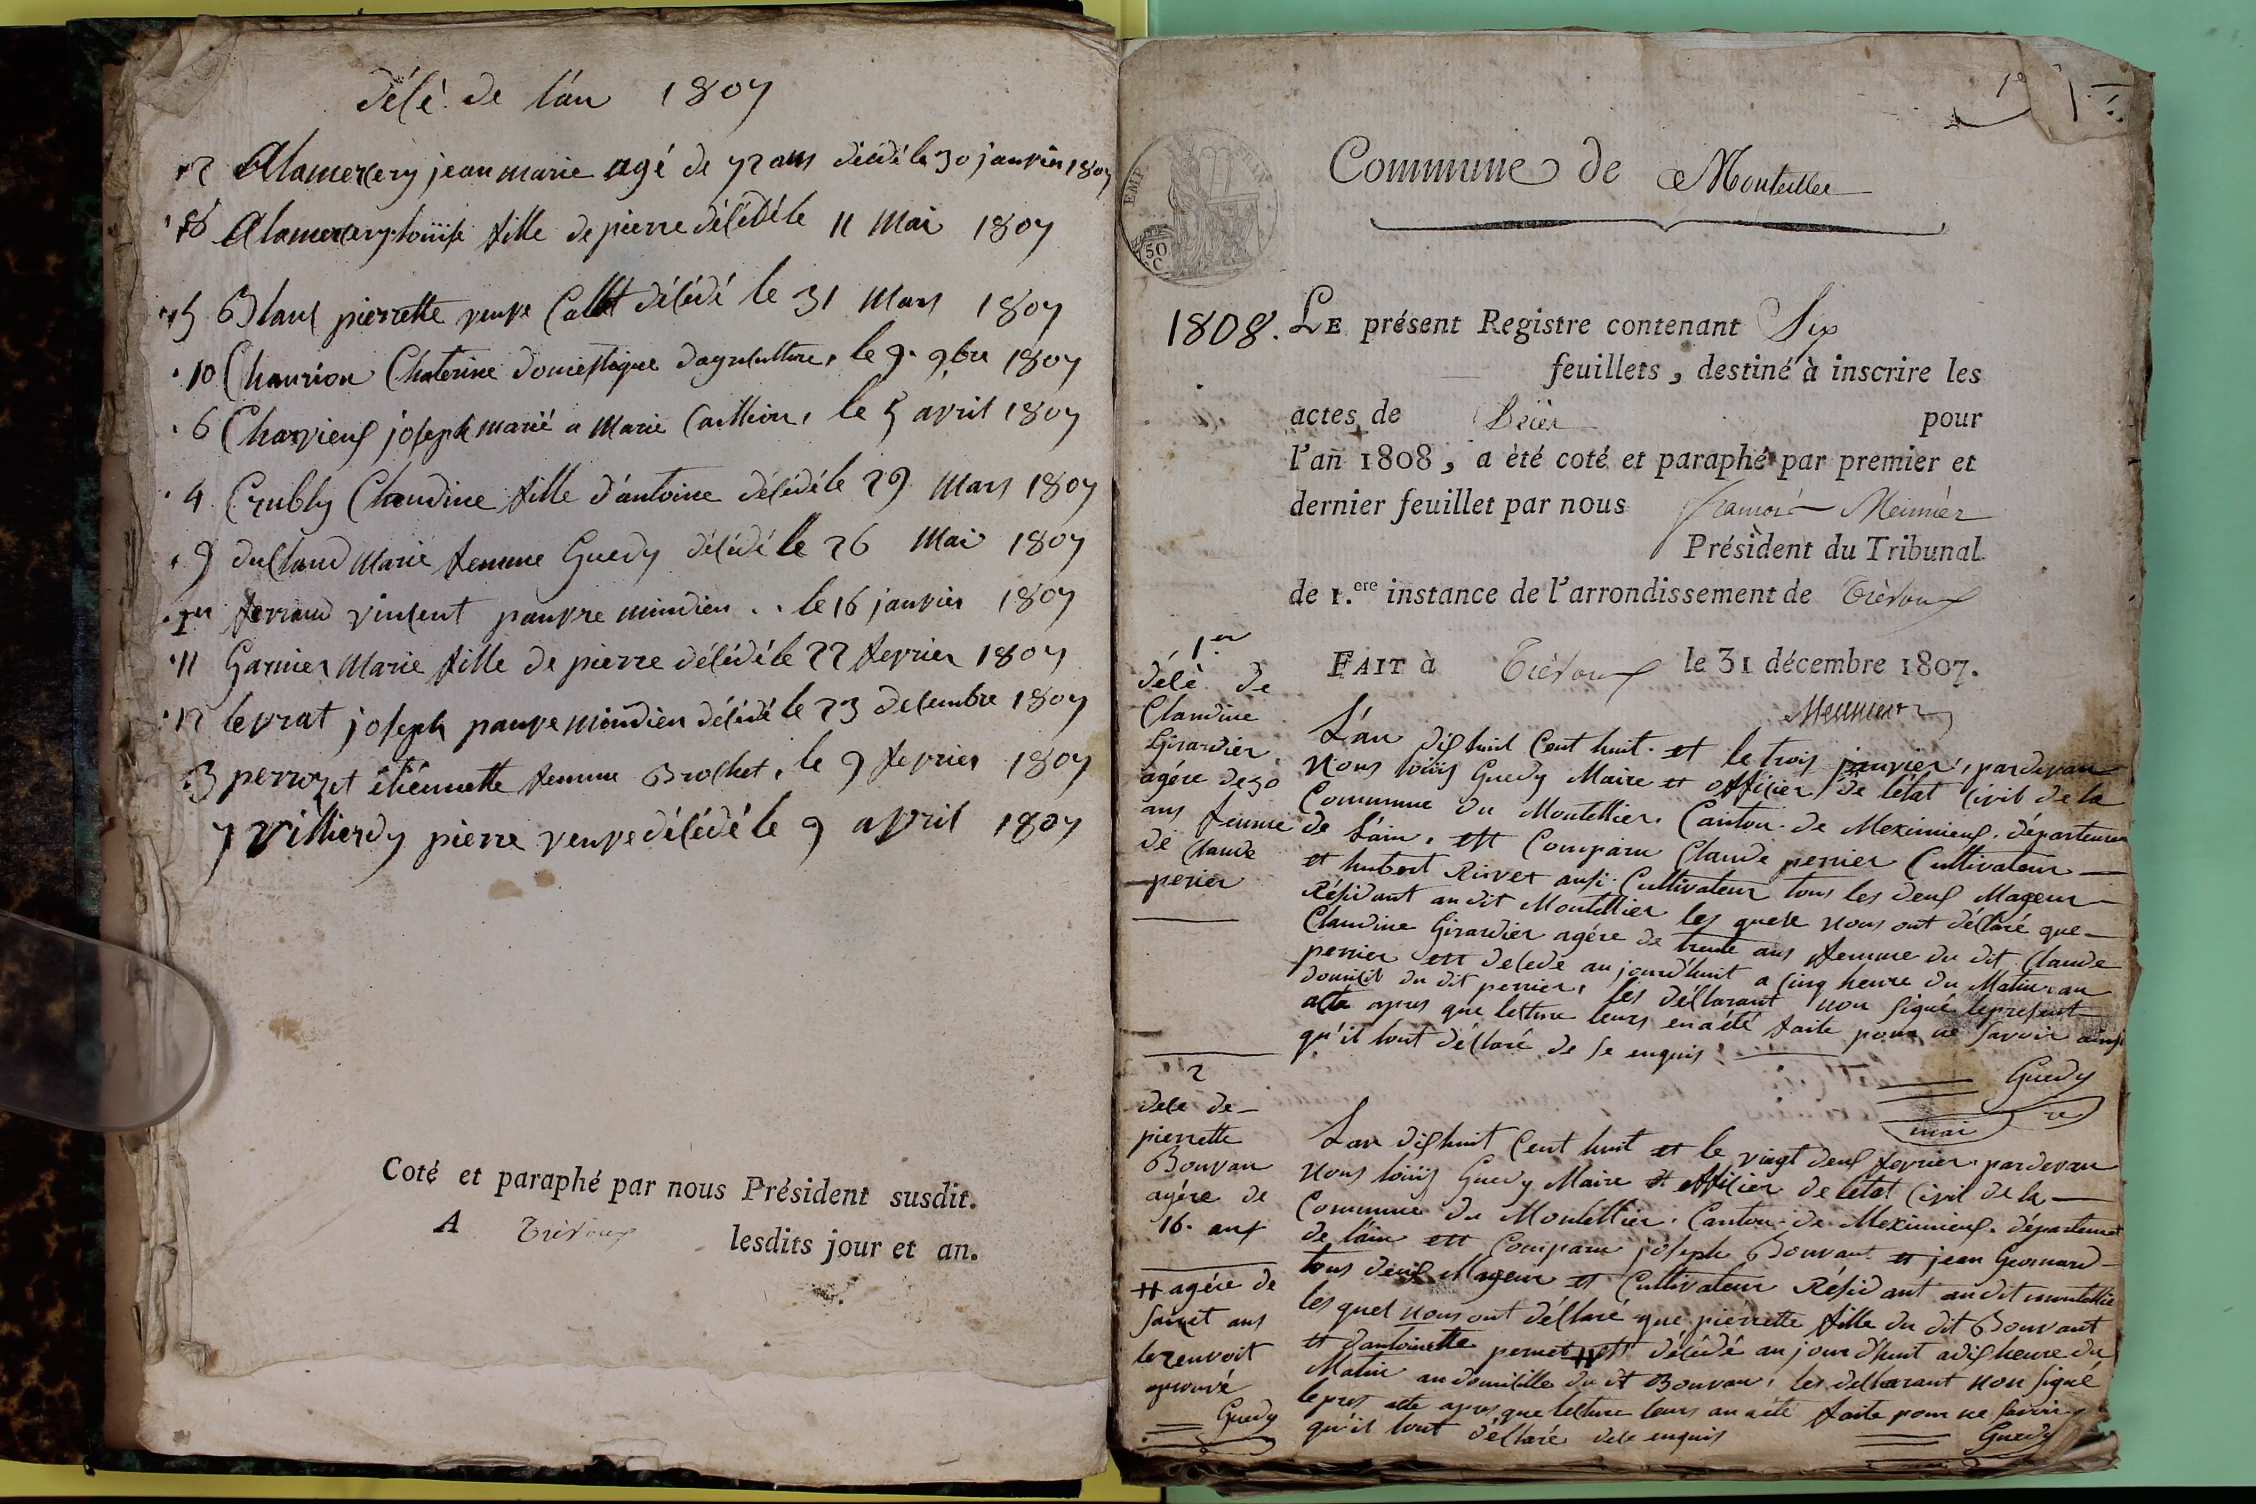 délé de l'an 1807
2 Alamercery jean marie agé de 72 ans décédé le 30 janvier 1807
8 Alamercery loüise fille de pierre délédé le 11 Mai 1807
5 Blanc pierrette veuve Collet délédé le 31 Mars 1807
10 Chanrion Chaterine domestique dagriculture, le 9. 9bre 1807
6 Charvieux joseph marié a Marie Carthion, le 5 avril 1807
4 Crubly Claudine fille d'antoine délédé le 29 Mars 1807
9 duclaud Marie femme Guedy délédé le 26 Mai 1807
1er ferrand vinsent pauvre mindien .. le 16 janvier 1807
11 Garnier Marie fille de pierre délédé le 22 fevrier 1807
12 levrat joseph pauvre mindien délédé le 23 delembre 1807
3 perrozet étiénnette femme Brochet, le 9 fevrier 1807
7 Villierdy pierre veuve délédé le 9 avril 1807
Coté et paraphé par nous Président susdit.
A Trévoux lesdits jour et an.
1er
EMP
50
C.
Commune de Montellier
1808. LE présent Registre contenant Six
feuillets, destiné à inscrire les
actes de Décès pour
l'an 1808, a été coté et paraphé par premier et
dernier feuillet par nous François Meunier
Président du Tribunal
de 1.ere instance de l'arrondissement de Trévoux
FAIT à Trévoux le 31 décembre 1807.
Meunier
1er
délè de
Claudine
Girardier
agére de 30
ans femme
de Claude
perier
L'an dix huit Cent huit et le trois janvier, pardevan
Nous loüis Guedy Maire et officier de l'état Civil de la
Commune du Montellier. Canton de Meximieux. département
de l'ain, est Comparu Claude perrier Cultivateur
et hubert Rivet aussi Cultivateur tous les deux Mageur
Résidant au dit Montellier les quele nous ont déclaré que
Claudine Girardier agére de trente ans femme du dit Claude
perrier est delede au jourd'huit a Cinq heure du Matin au
domicil du dit perrier, les déclarant non signé le present
acte apres que lecture leurs en a été faite pour ne savoir ainsi
qu'il l'ont déclaré de se enquis
Guedy
mai re
2
dele de
pierrette
Bouvan
agére de
16. ans
L'an dixhuit Cent huit et le vingt deux fevrier pardevan
Nous loüis Guedy Maire et officier de létat Civil de la
Commune du Montéllier. Canton de Meximieux. département
de l'ain est Comparu joseph Bouvant et jean Geornard
tous deux Mageur et Cultivateur Résidant au dit montellie
les quel nous ont déclaré que pierrette fille du dit Bouvant
et dantoinette pernet # est délédé au jour d'huit a dix heure du
Matin au domicille du dt Bouvan, les déclarant non signé
le pres acte apres que lecture leurs an a été faite pour ne savoir
qu'il l'ont déclaré dele enquis
Guedy
# agére de
saizet ans
le renvoit
aprouvé
Guedy